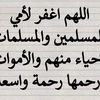 اللهم اغفر لأمي
لمسلمين والمسلمات
حياء منهم والأموات
رحمها رحمة واسع